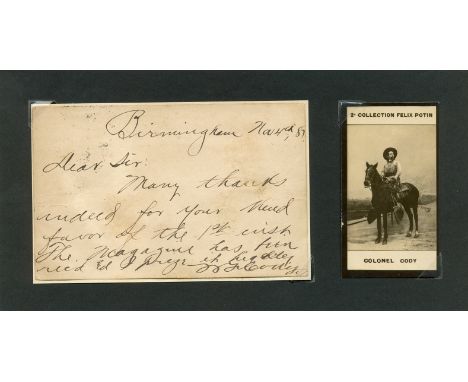 Birmingham Nov 4th, 87
Dear Sir:
Many thanks
indeed for your kind
favor of the 1st inst
The Magazine has been
recd & I prize it highly
W F Cody
2e COLLECTION FELIX POTIN
COLONEL CODY